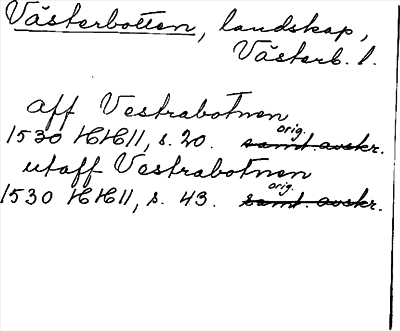 Västerbotten, landskap,
Västerb. l.
aff Vestrabotnen
1530 HH 11, s. 20. orig. samt. avskr.
utaff Vestrabotnen
1530 HH 11, s. 43. orig. samt. avskr.